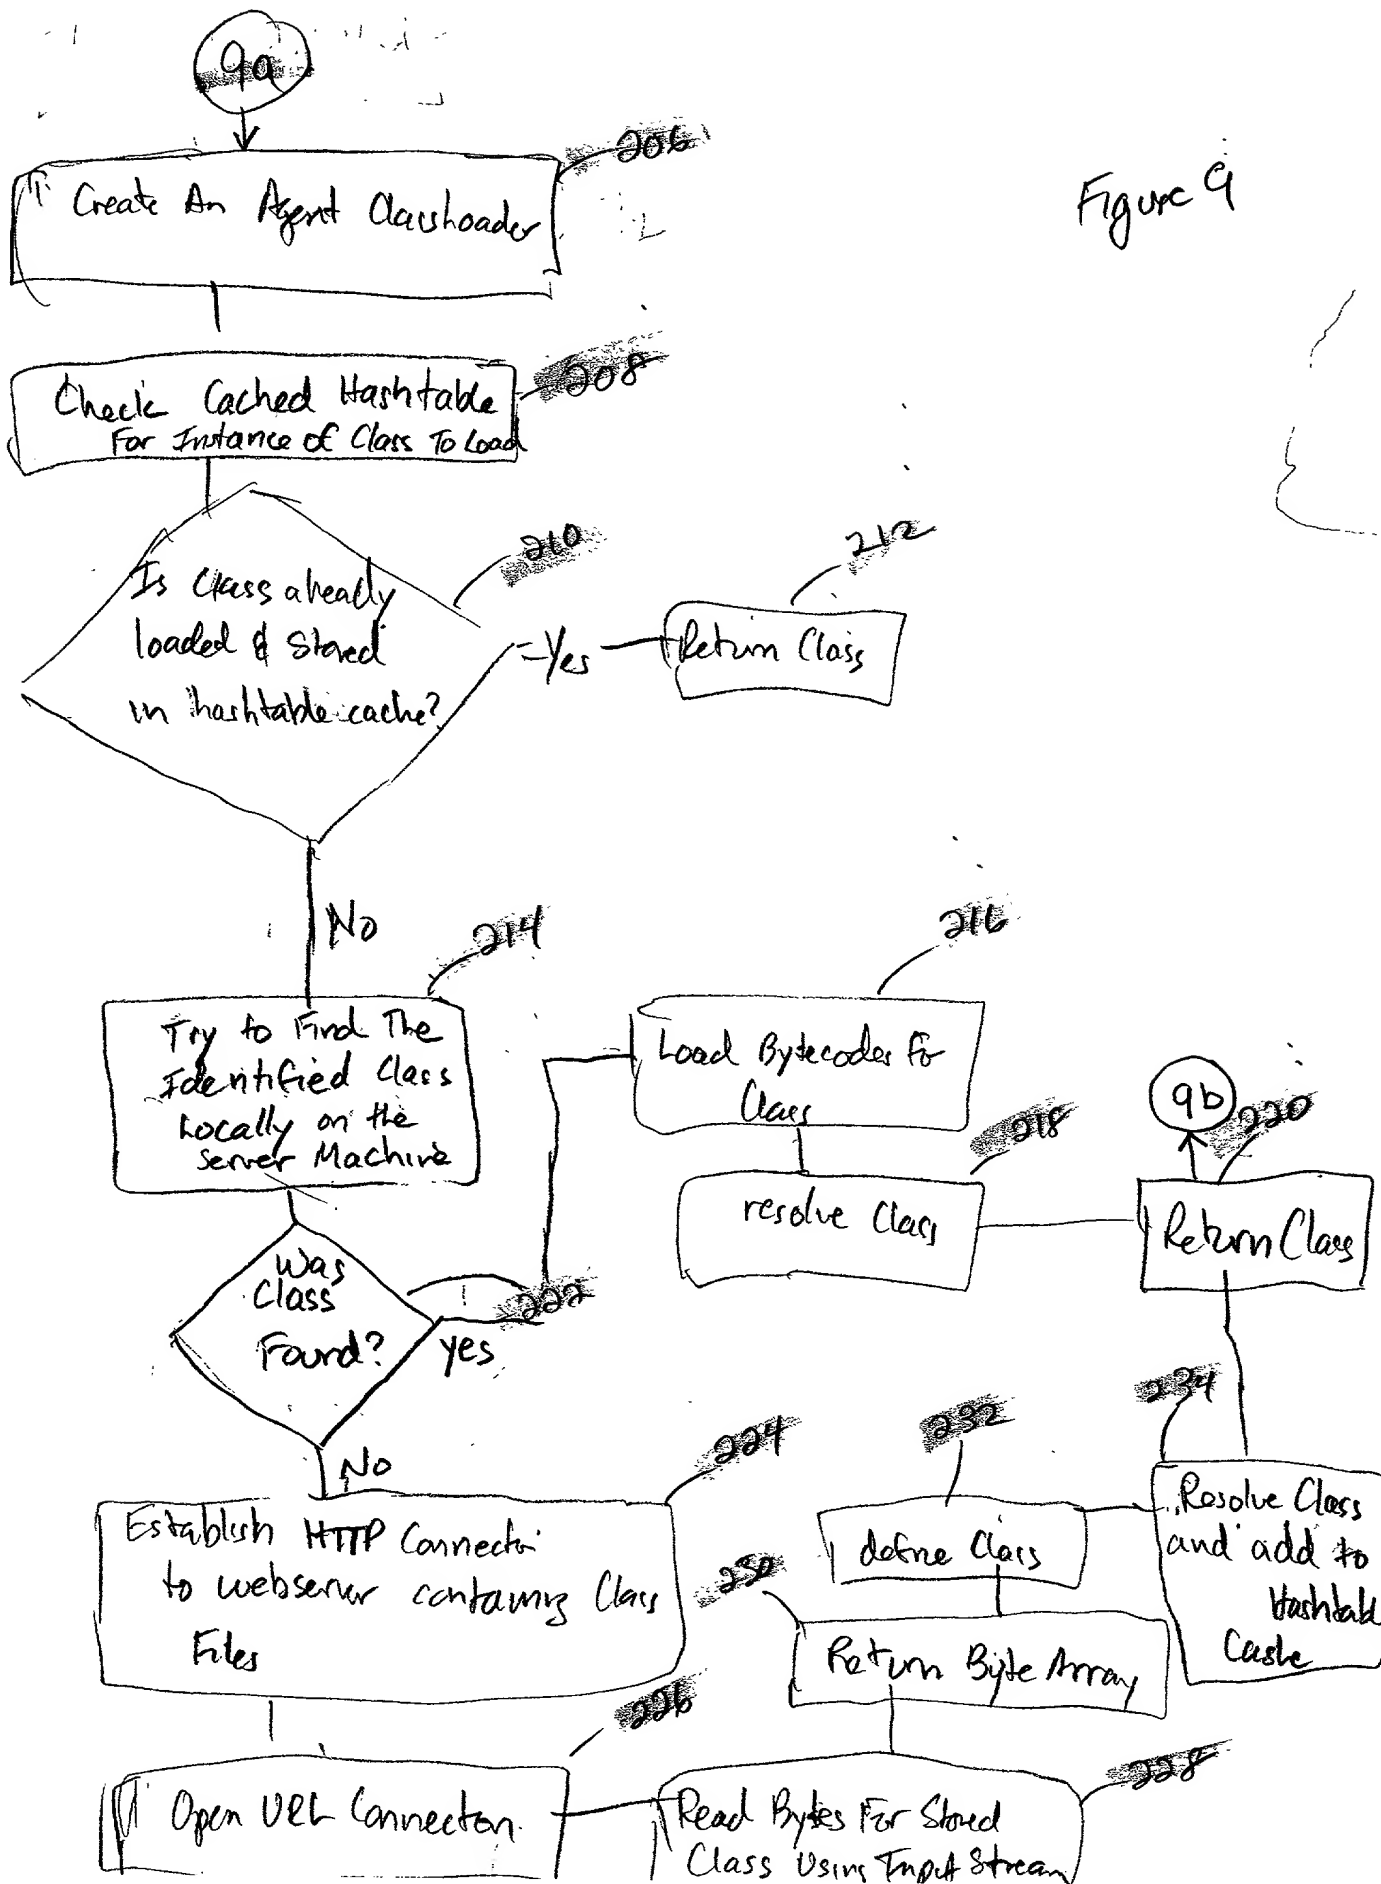 9a
206
Figure 9
Create An Agent Classloader
208
Check Cached Hashtable
For Instance of Class To Load
210
212
Is Class already
loaded & Stored
in hashtable cache?
Yes
Return Class
No
214
216
Try to Find The
Identified Class
Locally on the
Server Machine
Load Bytecodes For
Class
218
9b
220
resolve Class
Return Class
Was
Class
Found?
222
yes
No
224
232
234
Establish HTTP Connection
to webserver containing Class
Files
define Class
Resolve Class
and add to
Hashtabl
Cashe
230
Return Byte Array
226
228
Open URL Connection
Read Bytes For Stored
Class Using Input Stream